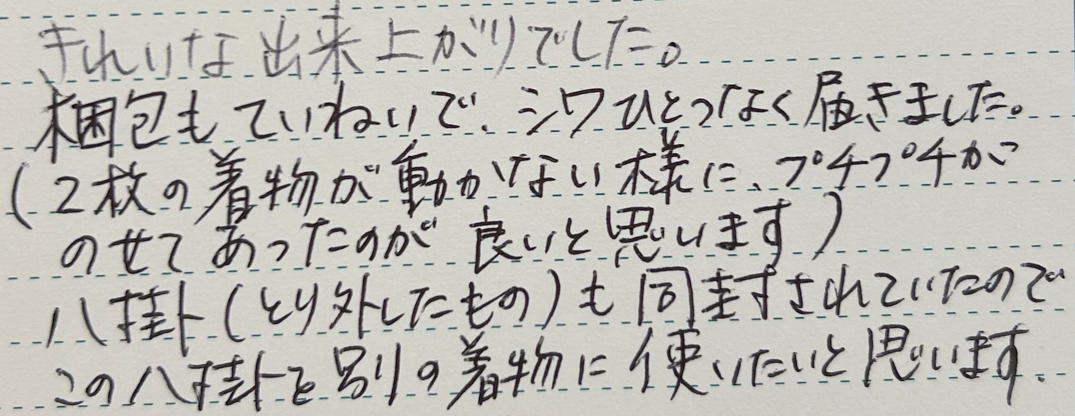 きれいな出来上がりでした。
梱包もていねいで、シワひとつなく届きました。
(2枚の着物が動かない様に、プチプチが
のせてあったのが良いと思います)
八掛(とり外したもの)も同封されていたので
この八掛を別の着物に使いたいと思います.